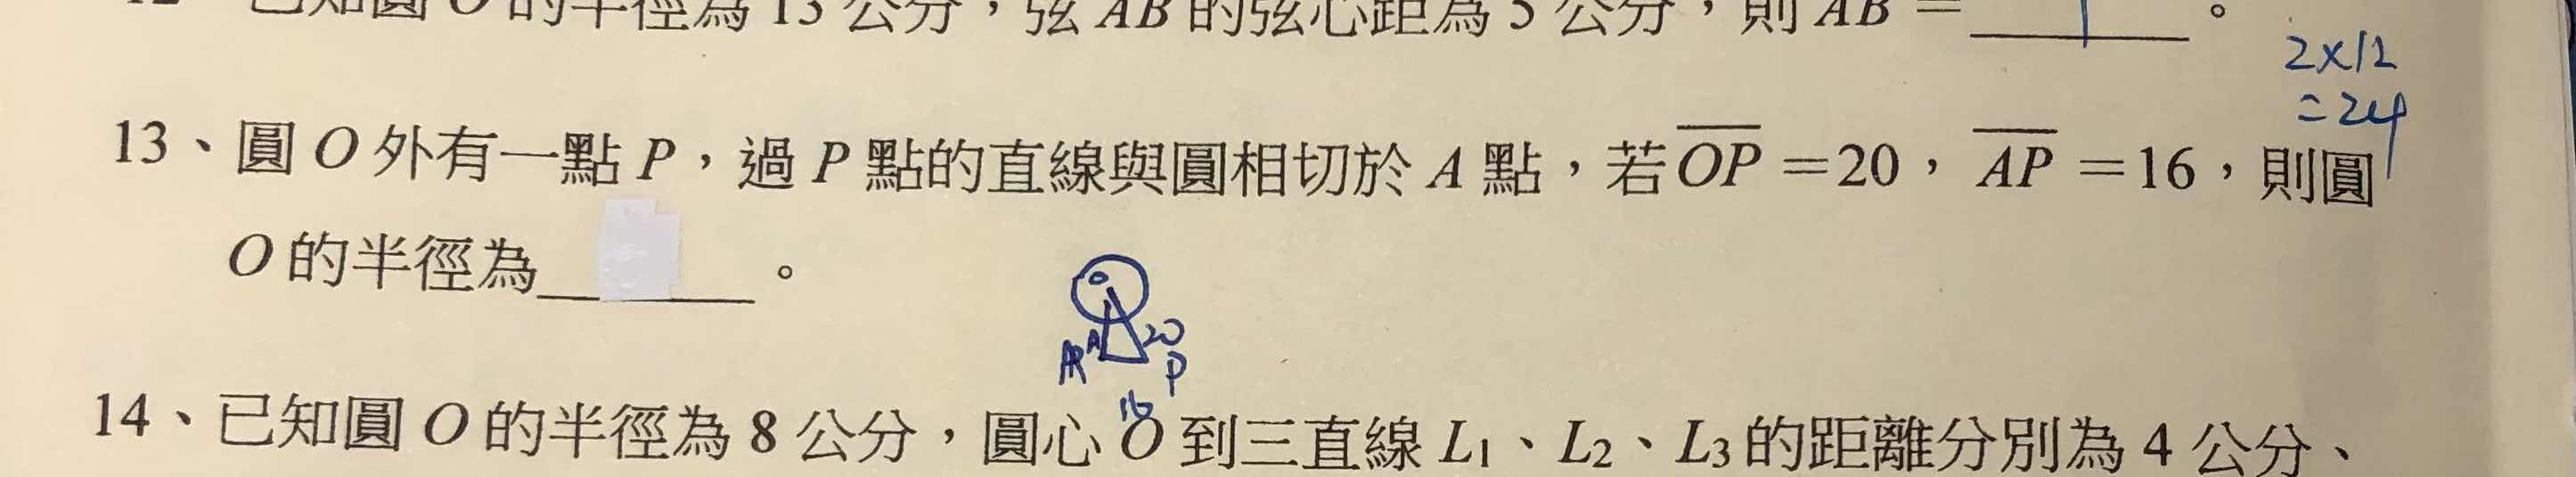 12 已知圓 O 的半徑為 13 公分，弦 AB 的弦心距為 5 公分，則 AB = 。
2×12
=24
13、圓 O 外有一點 P，過 P 點的直線與圓相切於 A 點，若 OP =20， AP =16，則圓
O 的半徑為 。
O
A 20
P
16
14、已知圓 O 的半徑為 8 公分，圓心 O 到三直線 L1、L2、L3 的距離分別為 4 公分、